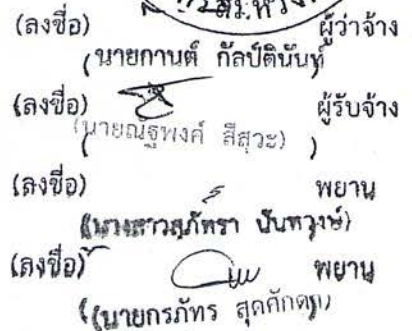 (ลงชื่อ) ผู้ว่าจ้าง
(นายกานต์ กัลป์ตินันท์)
(ลงชื่อ) ผู้รับจ้าง
(นายณัฐพงศ์ สีสุวะ)
(ลงชื่อ) พยาน
(นางสาวสุภัทรา
(ลงชื่อ) พยาน
(นายกรภัทร